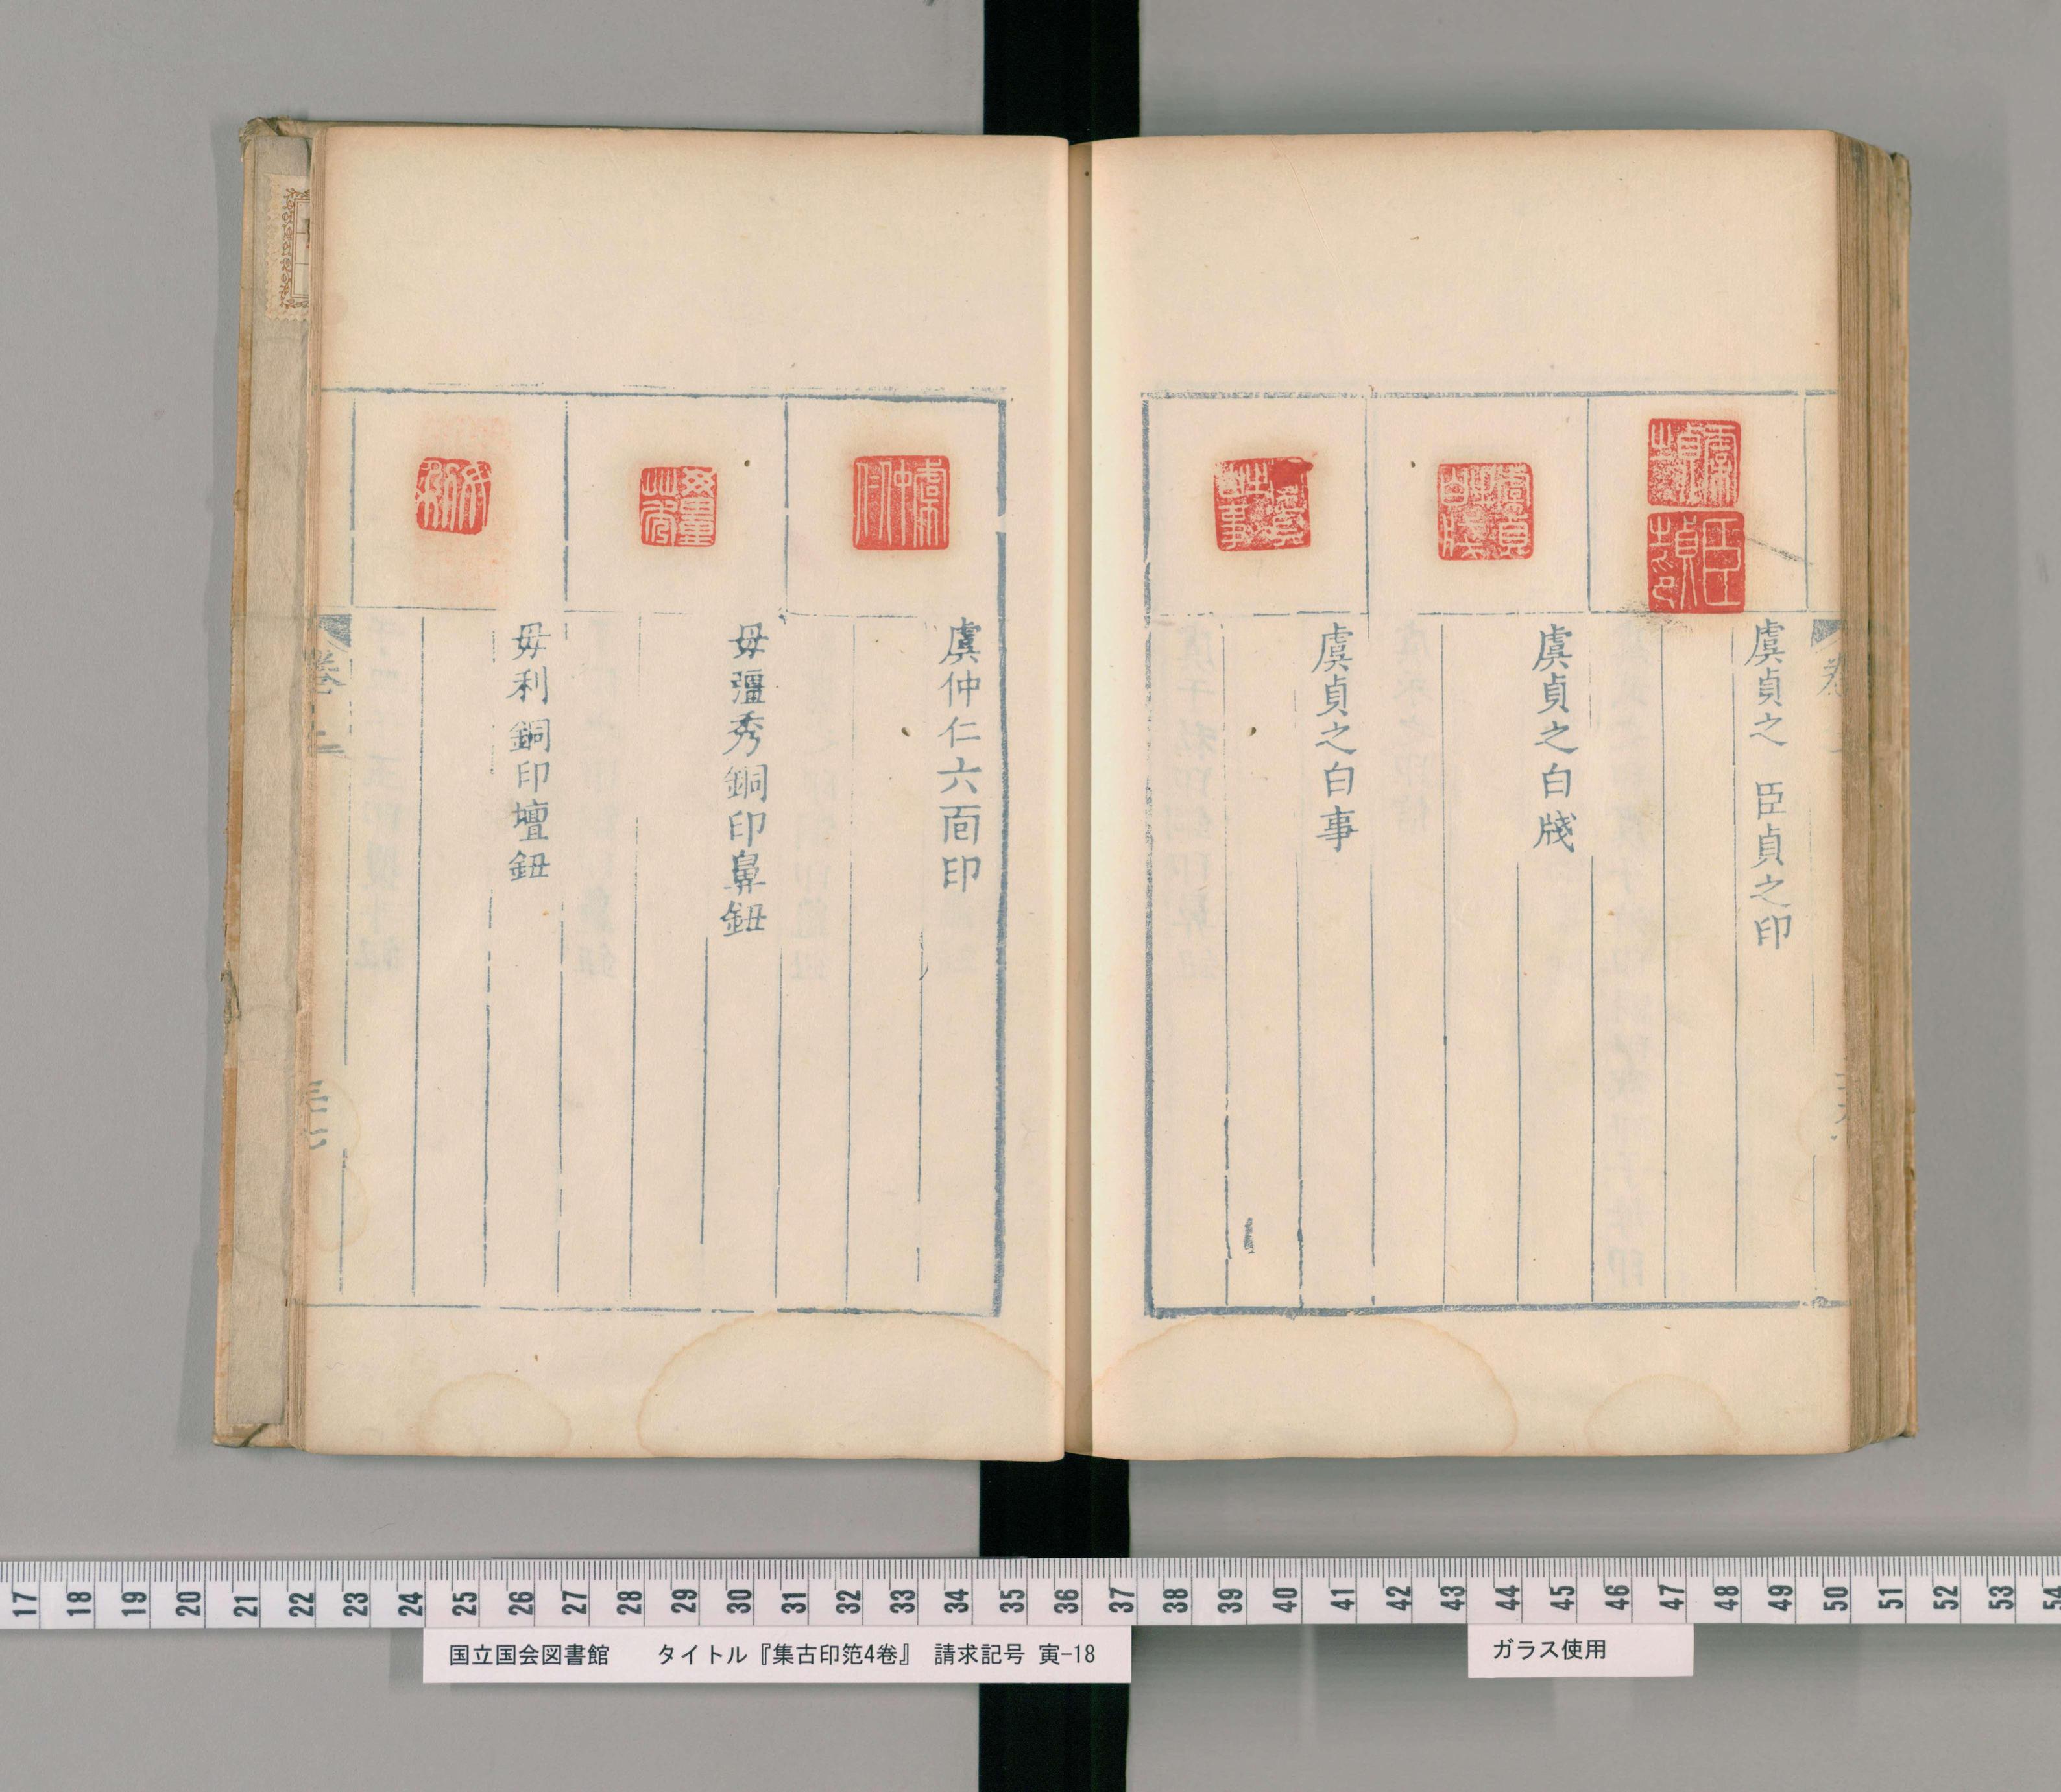 虞貞之 臣貞之印
虞貞之白牋
虞貞之白事
虞仲仁六面印
毋彊秀銅印鼻鈕
毋利銅印壇鈕
卷二
三七
17 18 19 20 21 22 23 24 25 26 27 28 29 30 31 32 33 34 35 36 37 38 39 40 41 42 43 44 45 46 47 48 49 50 51 52 53 54
国立国会図書館 タイトル『集古印笵4巻』 請求記号 寅-18
ガラス使用